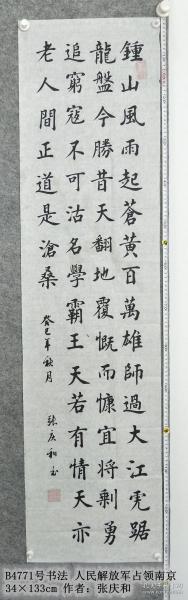 鍾山風雨起蒼黃百萬雄師過大江虎踞
龍盤今勝昔天翻地覆慨而慷宜將剩勇
追窮寇不可沽名學霸王天若有情天亦
老人間正道是滄桑
癸巳年秋月
張慶和書
B4771号书法 人民解放军占领南京
34×133cm 作者：张庆和